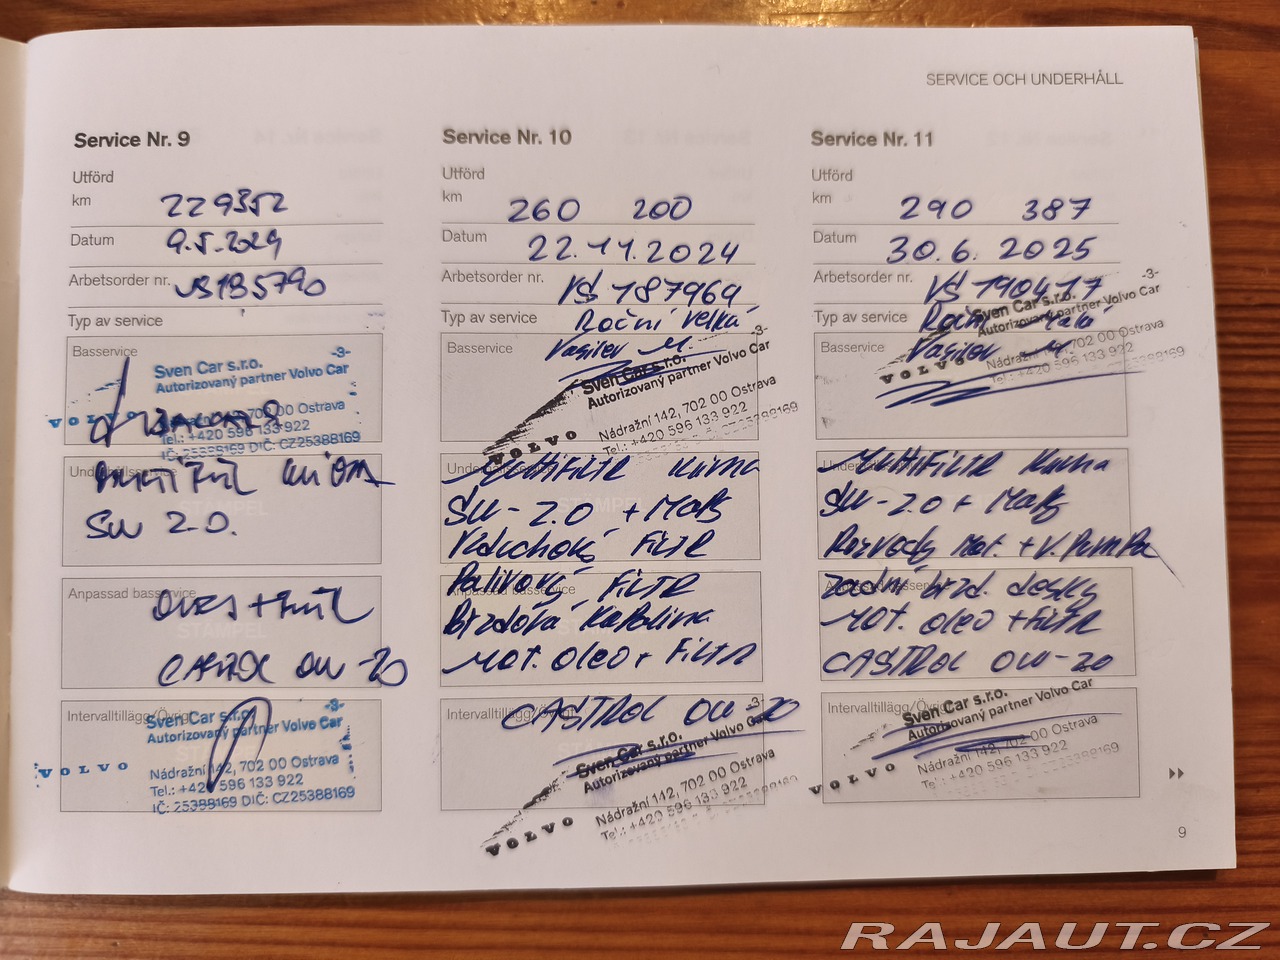 SERVICE OCH UNDERHÅLL
Service Nr. 9
Utförd
km 229352
Datum 9.5.2024
Arbetsorder nr. VS185790
Typ av service
Basservice
Sven Car s.r.o. -3-
Autorizovaný partner Volvo Car
VOLVO
Nádražní 142, 702 00 Ostrava
Tel.: +420 596 133 922
IČ: 25388169 DIČ: CZ25388169
Underhållsservice
SW 2.0.
STÄMPEL
Anpassad basservice
STÄMPEL
CASTROL OW-20
Intervalltillägg/Övrigt
Sven Car s.r.o. -3-
Autorizovaný partner Volvo Car
VOLVO
Nádražní 142, 702 00 Ostrava
Tel.: +420 596 133 922
IČ: 25388169 DIČ: CZ25388169
Service Nr. 10
Utförd
km 260 200
Datum 22.11.2024
Arbetsorder nr. VS 187969
Typ av service Roční velká
Basservice Vasilev M.
Sven Car s.r.o. -3-
Autorizovaný partner Volvo Car
VOLVO
Nádražní 142, 702 00 Ostrava
Tel.: +420 596 133 922
MULTIFILTR KABINA
SW-2.0 + MAPY
VZDUCHOVÝ FILTR
PALIVOVÝ FILTR
Anpassad basservice
BRZDOVÁ KAPALINA
MOT. OLEO + FILTR
Intervalltillägg/Övrigt
CASTROL OW-20
Sven Car s.r.o. -3-
Autorizovaný partner Volvo Car
VOLVO
Nádražní 142, 702 00 Ostrava
Tel.: +420 596 133 922
Service Nr. 11
Utförd
km 290 387
Datum 30.6.2025
Arbetsorder nr. VS 190417
Typ av service Roční Malá
Basservice Vasilev M
Sven Car s.r.o. -3-
Autorizovaný partner Volvo Car
VOLVO
Nádražní 142, 702 00 Ostrava
Tel.: +420 596 133 922
MULTIFILTR KABINA
SW-2.0 + MAPY
ROZVODY MOT. + V. PUMPA
ZADNÍ BRZD. DESKY
MOT. OLEO + FILTR
CASTROL OW-20
Intervalltillägg/Övrigt
Sven Car s.r.o.
Autorizovaný partner Volvo Car
VOLVO
Nádražní 142, 702 00 Ostrava
Tel.: +420 596 133 922
9
RAJAUT.CZ